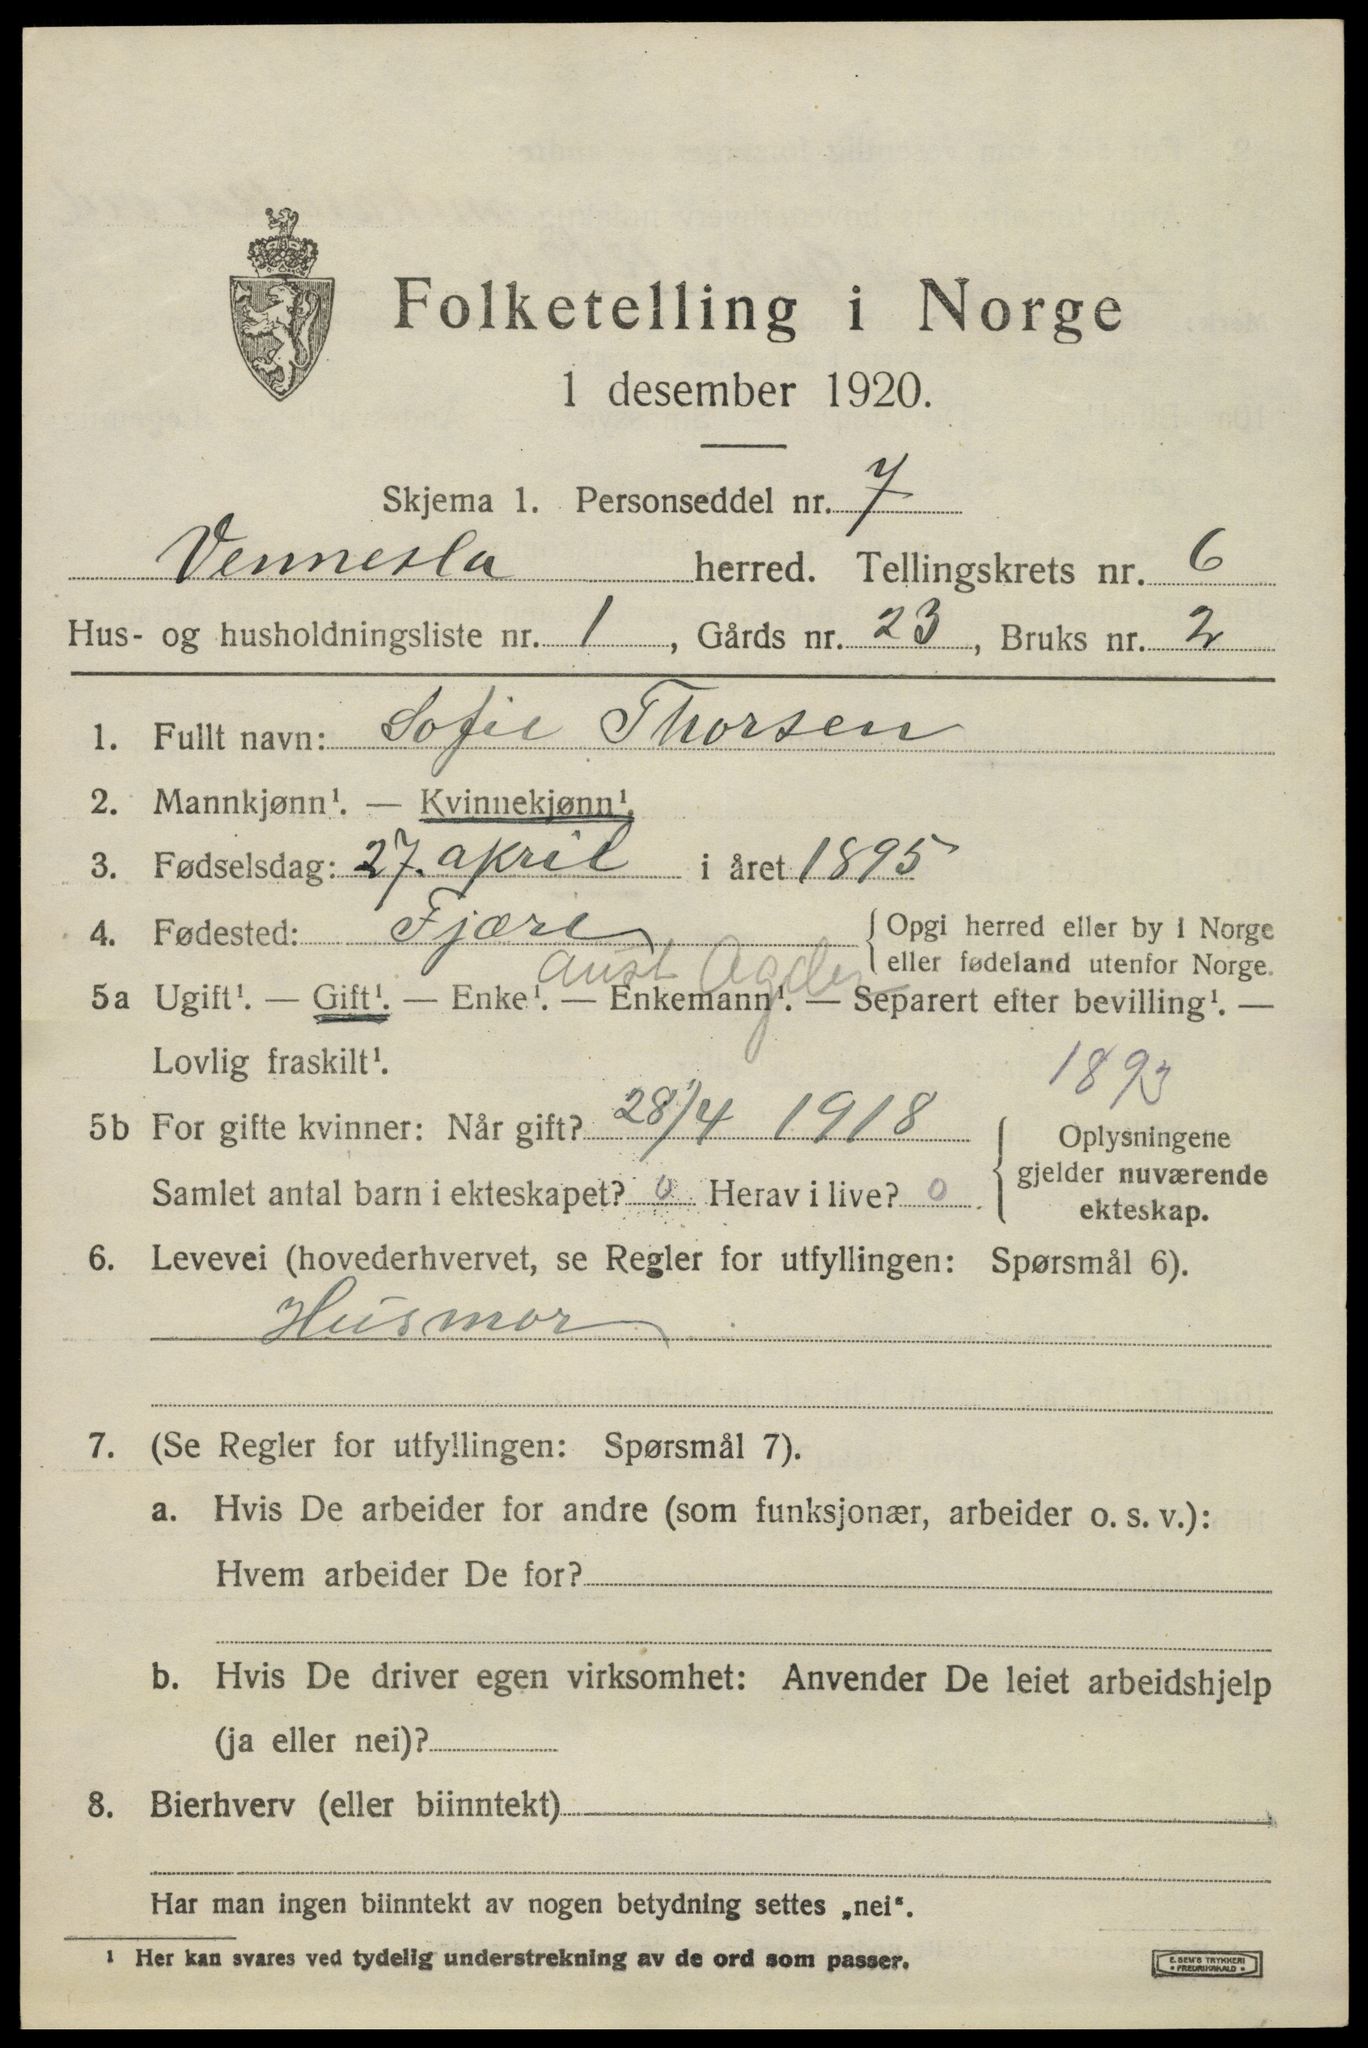 Folketelling i Norge
1 desember 1920.
Skjema 1. Personseddel nr. 7
Vennesla herred. Tellingskrets nr. 6
Hus- og husholdningsliste nr. 1, Gårds nr. 23, Bruks nr. 2
1. Fullt navn: Sofie Thorsen
2. Mannkjønn¹. — Kvinnekjønn¹.
3. Fødselsdag: 27. april i året 1895
4. Fødested: Fjære { Opgi herred eller by i Norge
eller fødeland utenfor Norge.
Aust Agder
5a Ugift¹. — Gift¹. — Enke¹. — Enkemann¹. — Separert efter bevilling¹. —
Lovlig fraskilt¹.
1893
5b For gifte kvinner: Når gift? 28/4 1918
Samlet antal barn i ekteskapet? 0 Herav i live? 0.
{ Oplysningene
gjelder nuværende
ekteskap.
6. Levevei (hovederhvervet, se Regler for utfyllingen: Spørsmål 6).
Husmor
7. (Se Regler for utfyllingen: Spørsmål 7).
a. Hvis De arbeider for andre (som funksjonær, arbeider o. s. v.):
Hvem arbeider De for?
b. Hvis De driver egen virksomhet: Anvender De leiet arbeidshjelp
(ja eller nei)?
8. Bierhverv (eller biinntekt)
Har man ingen biinntekt av nogen betydning settes „nei“.
¹ Her kan svares ved tydelig understrekning av de ord som passer.
E. SEM'S TRYKKERI
• FREDRIKSHALD •